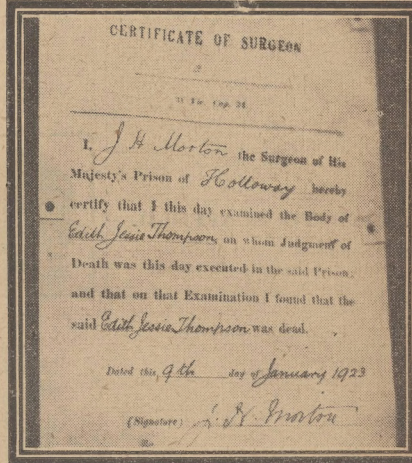 CERTIFICATE OF SURGEON
31 Vic. Cap. 24
I, J H Morton the Surgeon of His
Majesty's Prison of Holloway hereby
certify that I this day examined the Body of
Edith Jessie Thompson, on whom Judgment of
Death was this day executed in the said Prison;
and that on that Examination I found that the
said Edith Jessie Thompson was dead.
Dated this 9th day of January 1923
(Signature) J. H. Morton